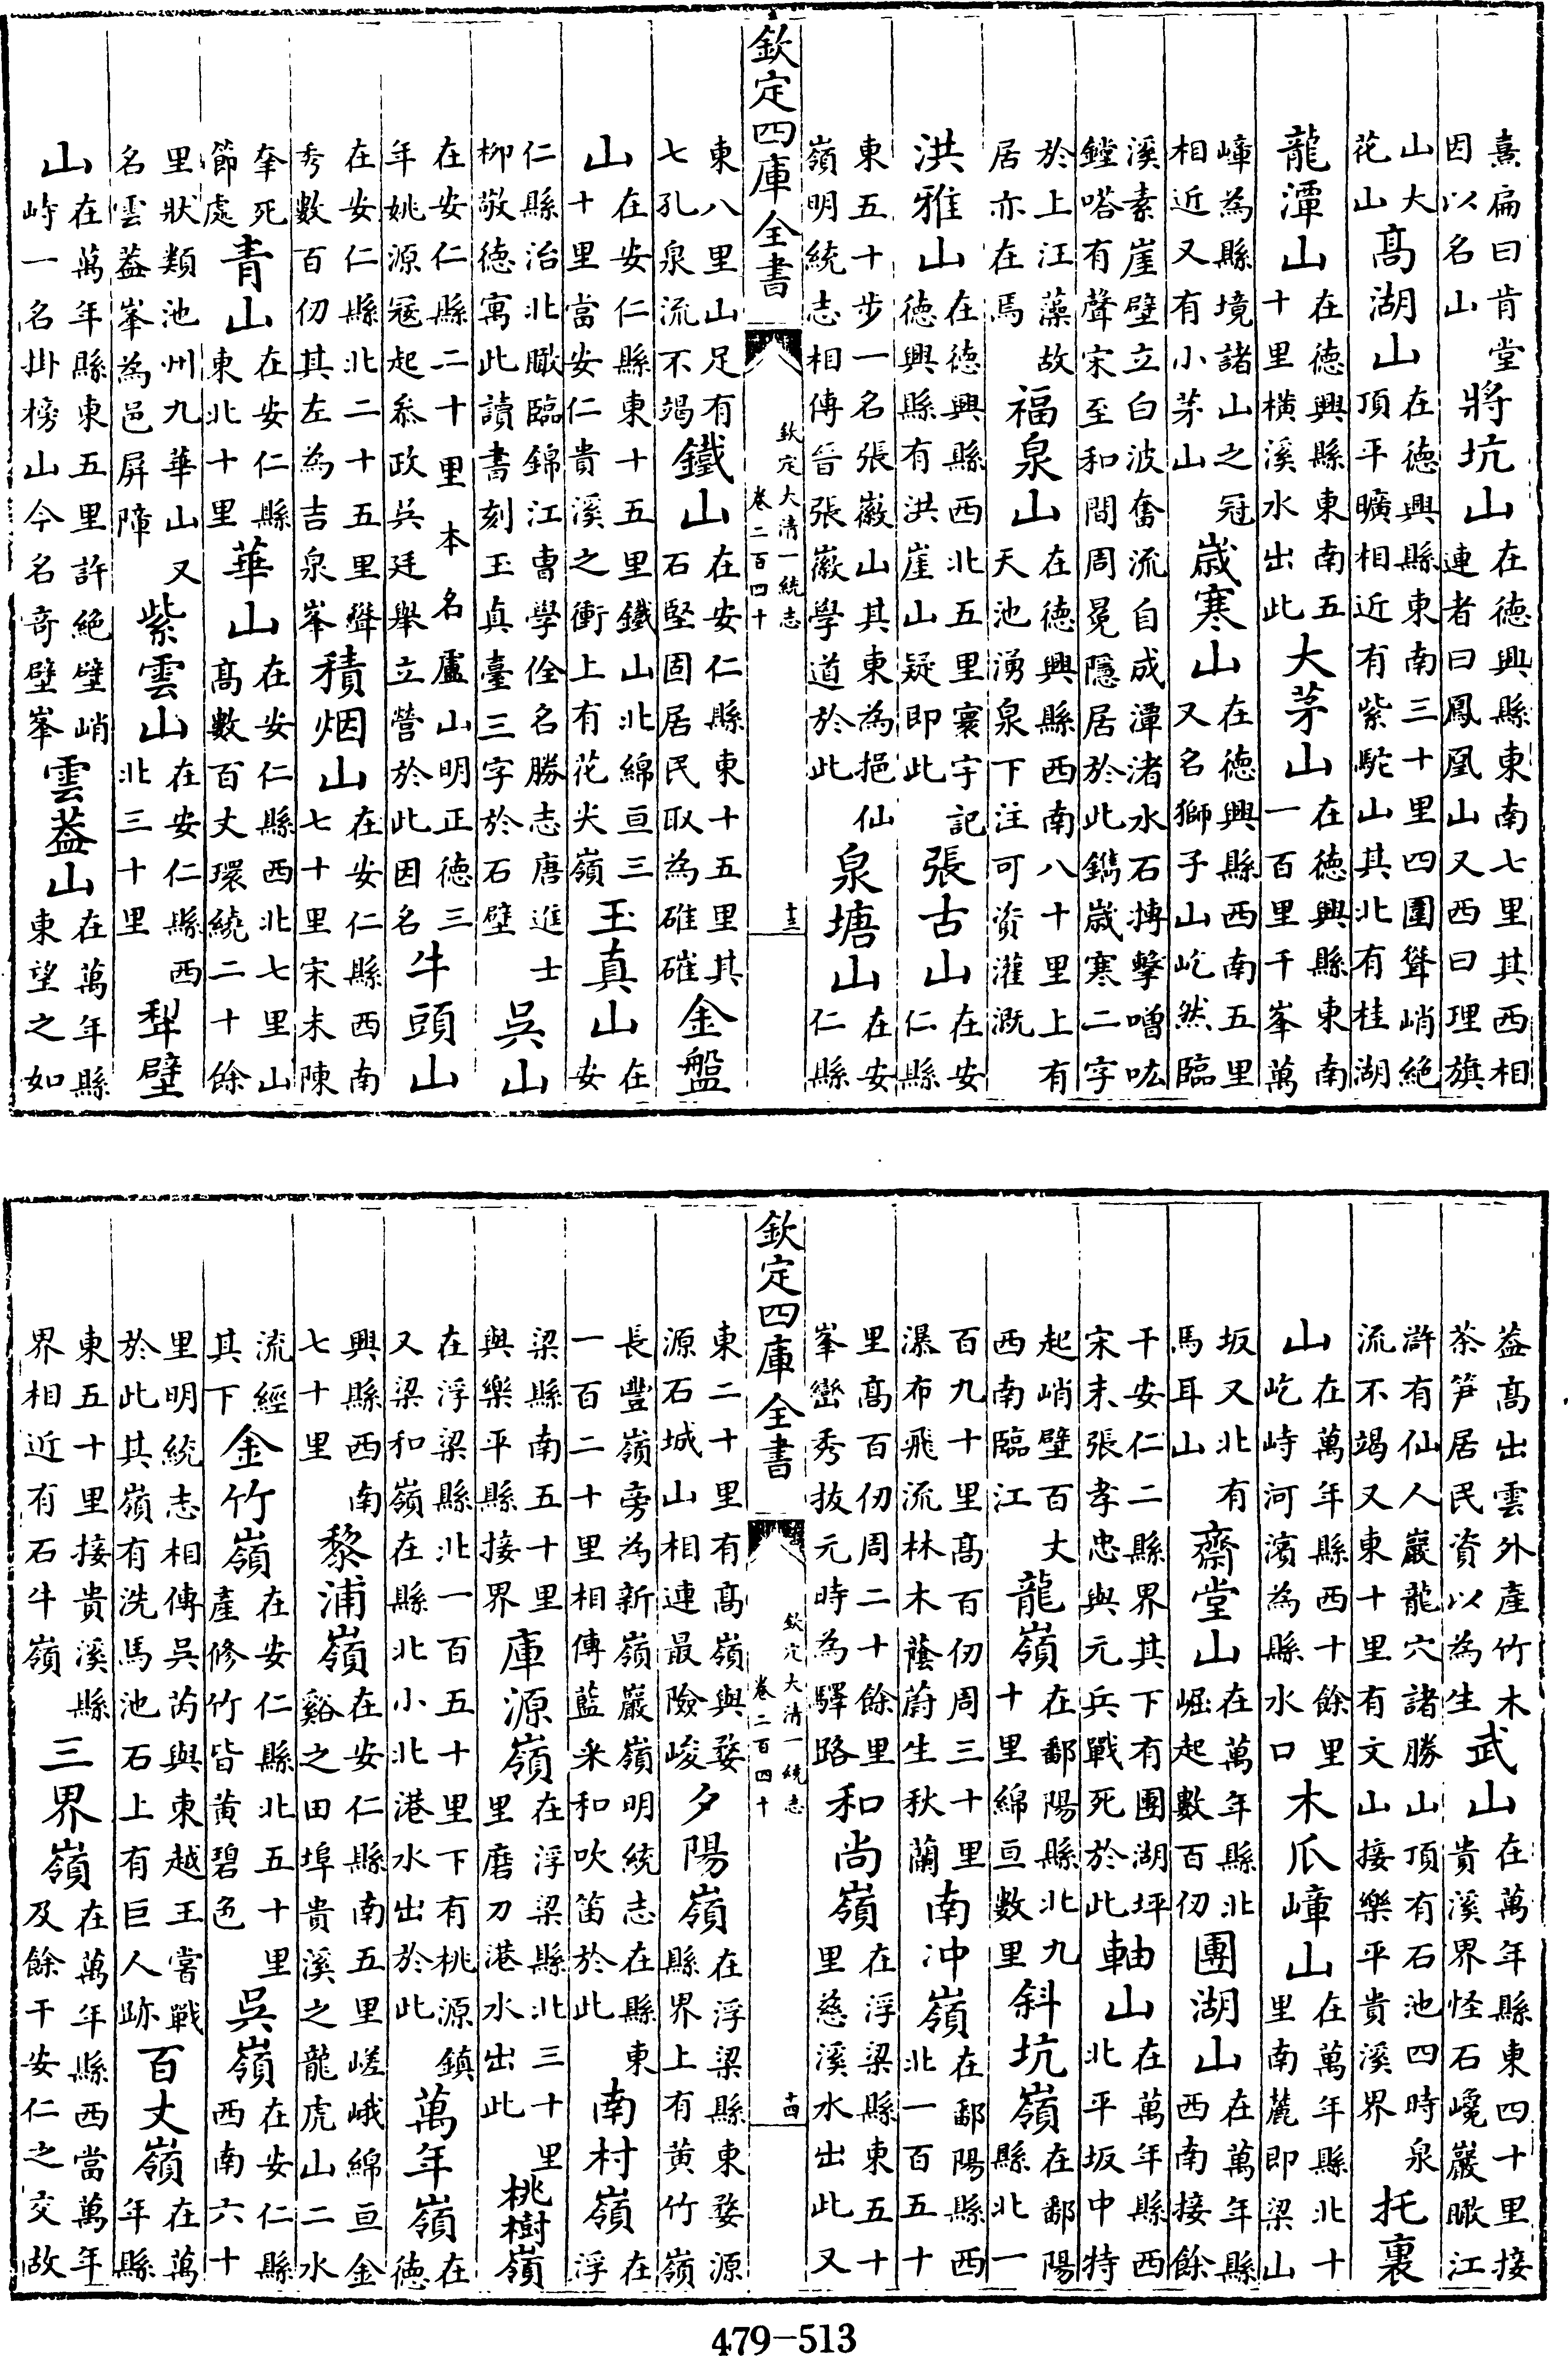 熹扁曰肯堂因以名山將坑山在德興縣東南七里其西相連者曰鳳凰山又西曰理旗
山大花山髙湖山在德興縣東南三十里四圍聳峭絶頂平曠相近有紫駝山其北有桂湖
龍潭山在德興縣東南五十里橫溪水出此大茅山在德興縣東南一百里千峯萬
嶂為縣境諸山之冠相近又有小茅山歲寒山在德興縣西南五里又名獅子山屹然臨
溪素崖壁立白波奮流自成潭渚水石摶擊噌吰鏜嗒有聲宋至和間周冕隱居於此鐫歲寒二字
於上江藻故居亦在焉福泉山在德興縣西南八十里上有天池湧泉下注可資灌溉
洪雅山在德興縣西北五里寰宇記德興縣有洪崖山疑即此張古山在安仁縣
東五十步一名張嶶山其東為挹仙嶺明統志相傳晉張嶶學道於此泉塘山在安仁縣
欽定四庫全書 欽定大清一統志 卷二百四十 十三
東八里山足有七孔泉流不竭鐵山在安仁縣東十五里其石堅固居民取為碓磑金盤
山在安仁縣東十五里鐵山北綿亘三十里當安仁貴溪之衝上有花尖嶺玉真山在安
仁縣治北瞰臨錦江曹學佺名勝志唐進士柳敬德寓此讀書刻玉真臺三字於石壁吳山
在安仁縣二十里本名盧山明正德三年姚源冦起叅政吳廷舉立營於此因名牛頭山
在安仁縣北二十五里聳秀數百仞其左為吉泉峯積烟山在安仁縣西南七十里宋末陳
羍死節處青山在安仁縣東北十里華山在安仁縣西北七里山髙數百丈環繞二十餘
里狀類池州九華山又名雲葢峯為邑屏障紫雲山在安仁縣西北三十里犁壁
山在萬年縣東五里許絶壁峭峙一名掛榜山今名奇壁峯雲葢山在萬年縣東望之如
葢髙出雲外產竹木茶笋居民資以為生武山在萬年縣東四十里接貴溪界怪石巉巖瞰江
滸有仙人巖龍穴諸勝山頂有石池四時泉流不竭又東十里有文山接樂平貴溪界托裏
山在萬年縣西十餘里屹峙河濱為縣水口木瓜嶂山在萬年縣北十里南麓即梁山
坂又北有馬耳山齋堂山在萬年縣北崛起數百仞團湖山在萬年縣西南接餘
干安仁二縣界其下有團湖坪宋末張孝忠與元兵戰死於此軸山在萬年縣西北平坂中特
起峭壁百丈西南臨江龍嶺在鄱陽縣北九十里綿亘數里斜坑嶺在鄱陽縣北一
百九十里髙百仞周三十里瀑布飛流林木蔭蔚生秋蘭南冲嶺在鄱陽縣西北一百五十
里髙百仞周二十餘里峯巒秀拔元時為驛路和尚嶺在浮梁縣東五十里慈溪水出此又
欽定四庫全書 欽定大清一統志 卷二百四十 十四
東二十里有髙嶺與婺源石城山相連最險峻夕陽嶺在浮梁縣東婺源縣界上有黄竹嶺
長豐嶺旁為新嶺巖嶺明統志在縣東一百二十里相傳藍采和吹笛於此南村嶺在浮
梁縣南五十里與樂平縣接界庫源嶺在浮梁縣北三十里里磨刀港水出此桃樹嶺
在浮梁縣北一百五十里下有桃源鎮又梁和嶺在縣北小北港水出於此萬年嶺在德
興縣西南七十里黎浦嶺在安仁縣南五里嵯峨綿亘金谿之田埠貴溪之龍虎山二水
流經其下金竹嶺在安仁縣北五十里產修竹皆黄碧色吳嶺在安仁縣西南六十
里明統志相傳吳芮與東越王嘗戰於此其嶺有洗馬池石上有巨人跡百丈嶺在萬年縣
東五十里接貴溪縣界相近有石牛嶺三界嶺在萬年縣西當萬年及餘干安仁之交故
479-513